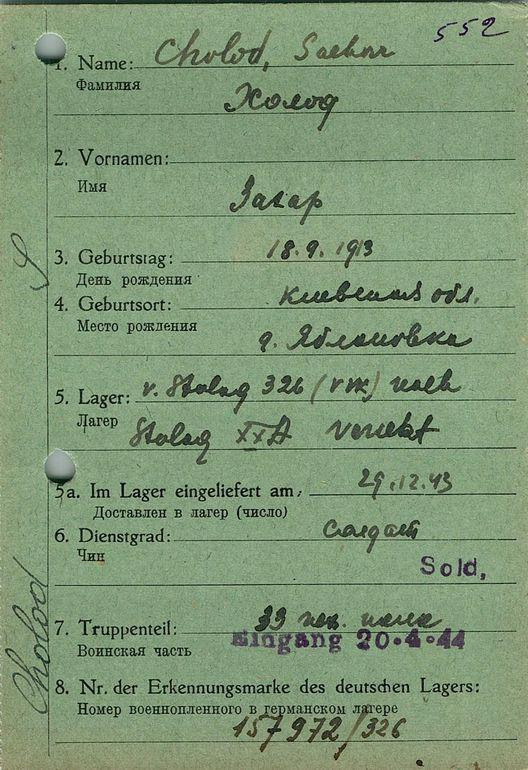 552
1. Name: Cholod, Sachar
Фамилия
Холод
2. Vornamen:
Имя
Захар
3. Geburtstag: 18.9.1913
День рождения
4. Geburtsort: Киевская обл.
Место рождения
д. Яблоновка
5. Lager: v. Stalag 326 (VIK) nach
Лагер
Stalag XXA versetzt
5a. Im Lager eingeliefert am, 29.12.43
Доставлен в лагер (число)
6. Dienstgrad: Солдат
Чин
Sold,
7. Truppenteil: 33
Воинская часть
Eingang 20·4·44
8. Nr. der Erkennungsmarke des deutschen Lagers:
Номер военнопленного в германском лагере
157972/326
Cholod S